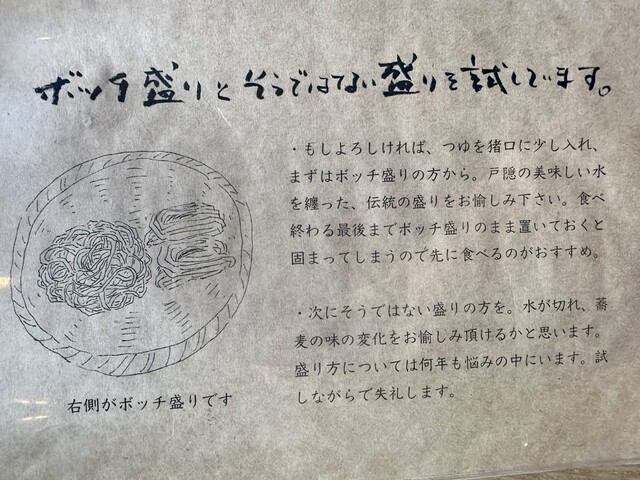 ボッチ盛りとそうではない盛りを試しています。
・もしよろしければ、つゆを猪口に少し入れ、
まずはボッチ盛りの方から。戸隠の美味しい水
を纏った、伝統の盛りをお愉しみ下さい。食べ
終わる最後までボッチ盛りのまま置いておくと
固まってしまうので先に食べるのがおすすめ。
・次にそうではない盛りの方を。水が切れ、蕎
麦の味の変化をお愉しみ頂けるかと思います。
盛り方については何年も悩みの中にいます。試
しながらで失礼します。
右側がボッチ盛りです